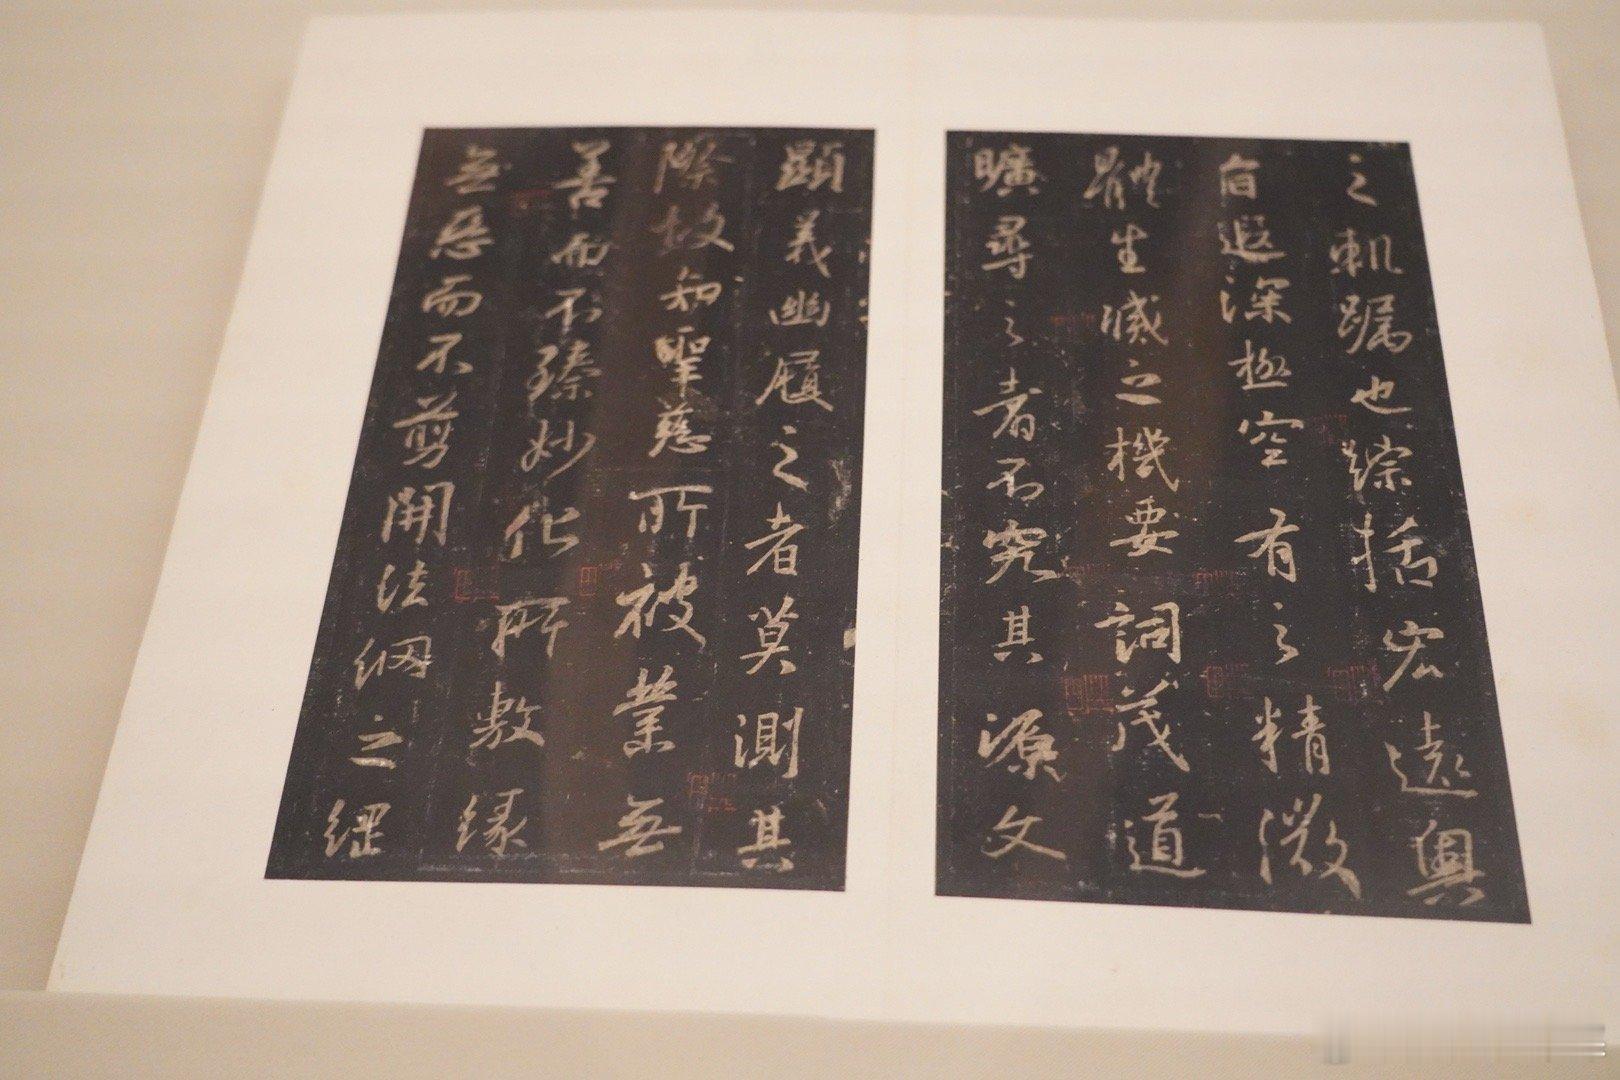 之軌躅也綜括宏遠奧
旨遐深極空有之精微
體生滅之機要詞茂道
曠尋之者不究其源文
顯義幽履之者莫測其
際故知聖慈所被業無
善而不臻妙化所敷緣
無惡而不剪開法網之綱